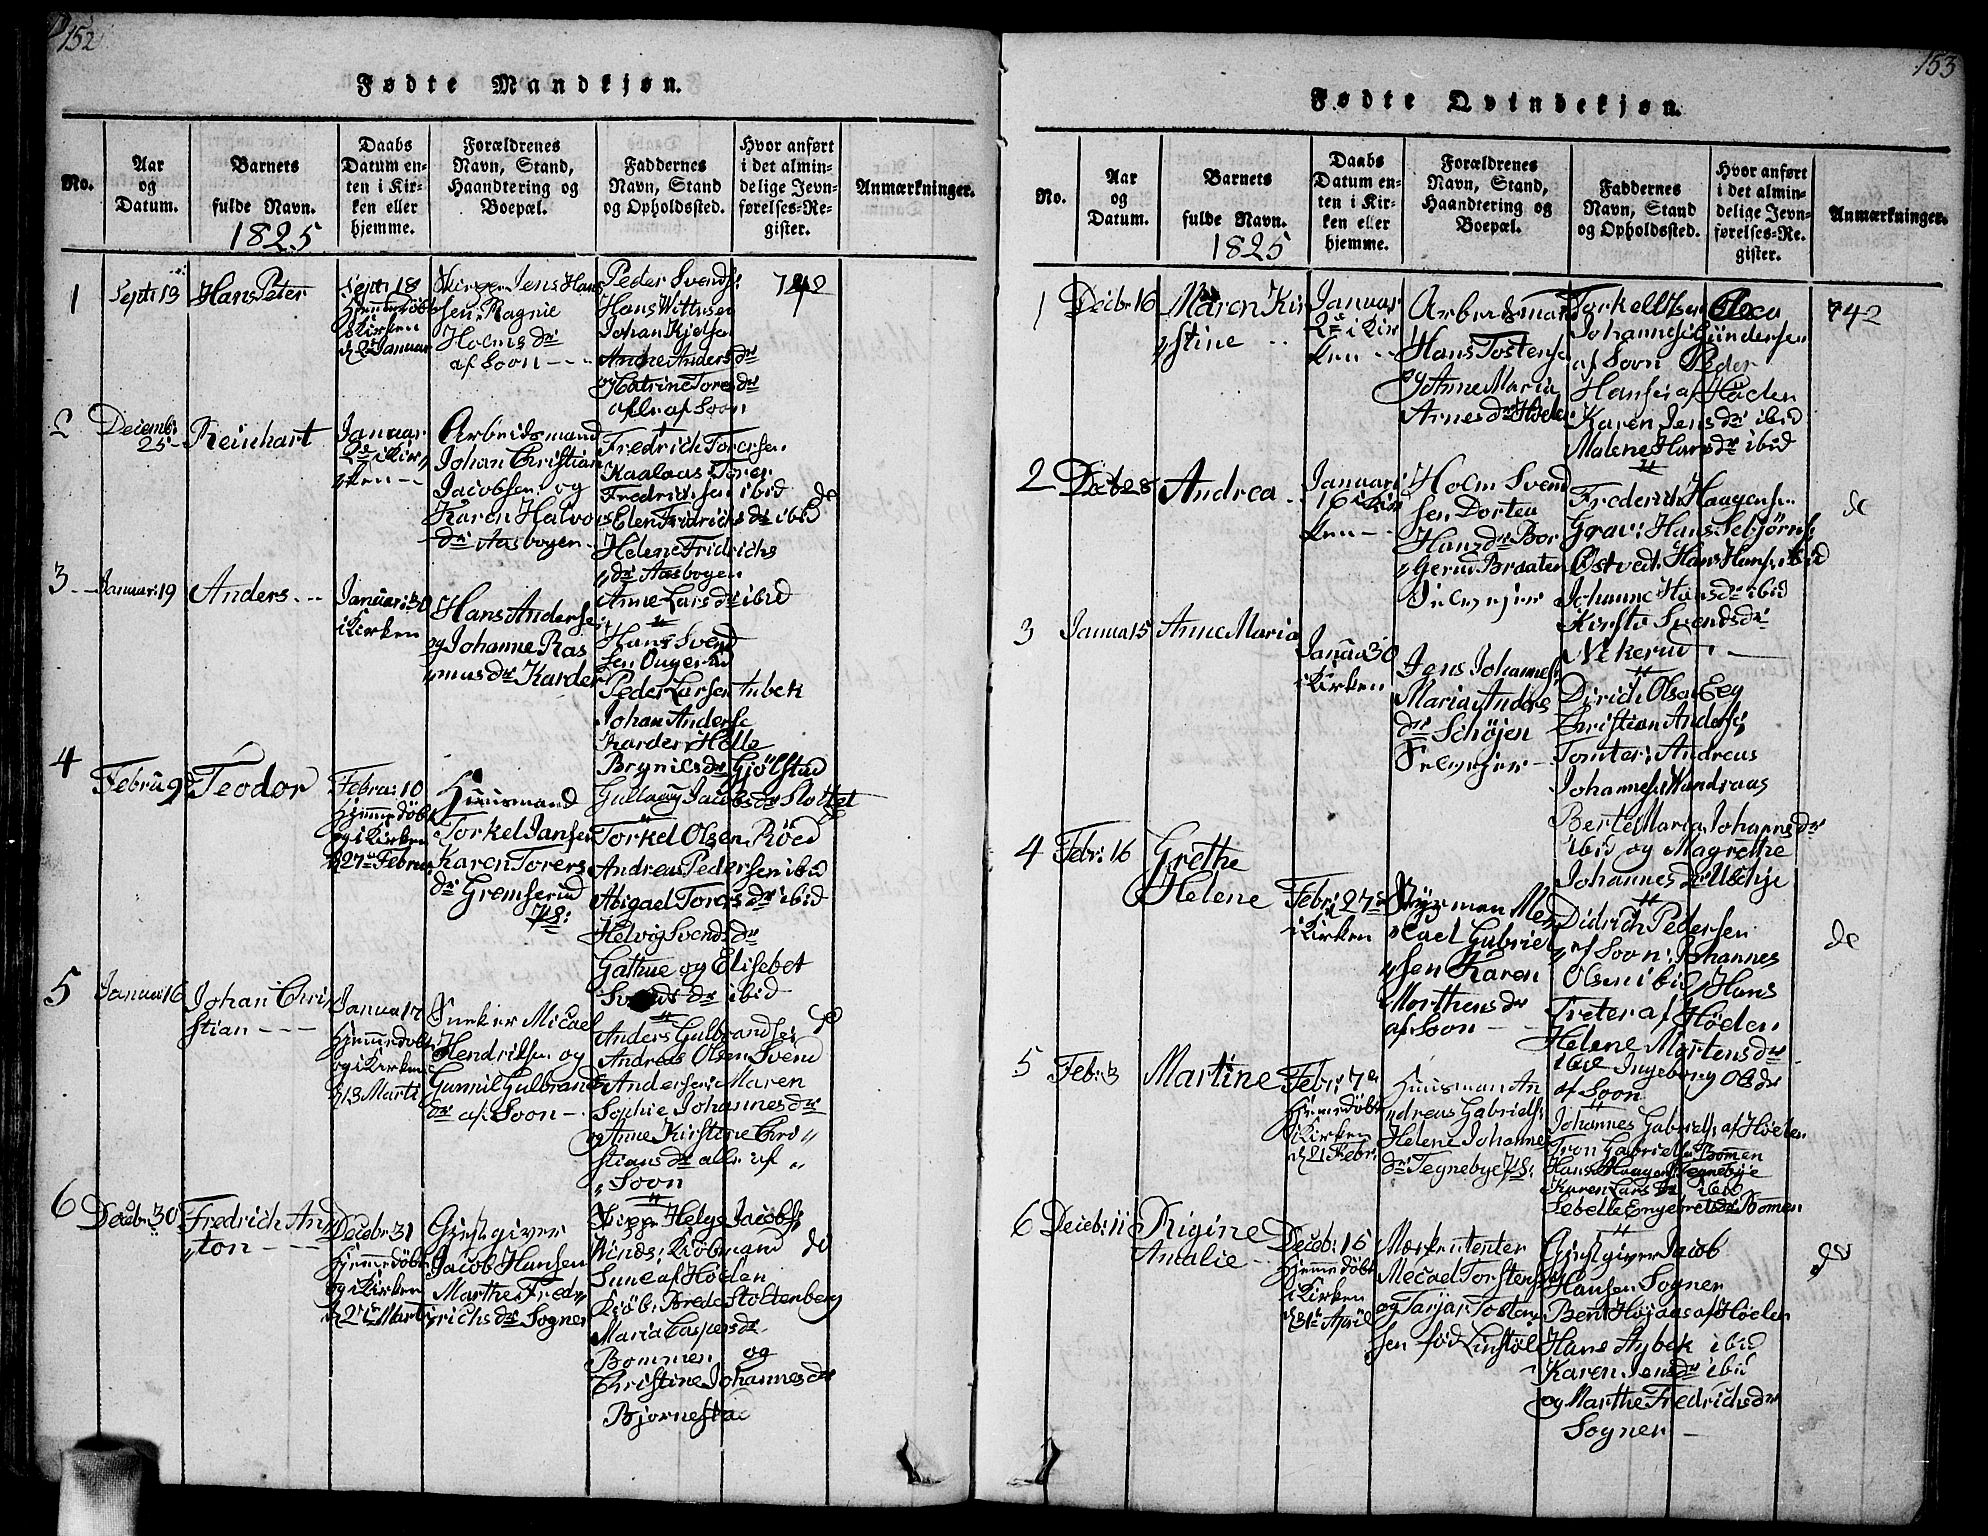 152
Fødte Mandkjøn.
No.
Aar
og
Datum.
Barnets
fulde Navn.
1825
Daabs
Datum en-
ten i Kir-
ken eller
hjemme.
Forældrenes
Navn, Stand,
Haandtering og
Boepæl.
Faddernes
Navn, Stand
og Opholdssted.
Hvor anført
i det almin-
delige Jevn-
førelses-Re-
gister.
Anmærkninger.
1
Septr 13
Hans Peter
Septr 18
Hjemmedøbt
i Kirken
2 Januar
Jens Han
sen Ragnie
Holms dr
af Soon
Peder Svends
Hans Wittusen
Johan Kjelsen
Andrea Anders dr
og Catrine Tores dr
alle af Soon
742
2
Decemb:
25
Reinhart
Januar
2 i Kir
ken
Arbeidsmand
Johan Christian
Jacobsen og
Karen Halvors
dr Aasbogen
Fredrich Torersen
Fredrichsen ibid
Elen Fridrichs dr ibid
Helene Fridrichs
dr Aasbogen
Anne Lars dr ibid
do
3
Januar: 19
Anders
Januar: 30
i Kirken
Hans Anderse
og Johanne Ras
mus dr Karder
Hans Svend
sen Ougerud
Peder Larsen Aubek
Johan Anderse
Karder Helle
Brynils dr Gjølstad
Jacobs dr Slottet
4
Febru 9
Teodor
Febru: 10
Hjemmedøbt
og i Kirken
27 Febru
Huusmand
Torkel Jansen
Karen Torers
dr Gremserud
Torkel Olsen Røed
Andreas Pedersen ibid
Abigael Tores dr ibid
Helvig Svends dr
Gathue og Elisebet
Svends dr ibid
do
5
Januar 16
Johan Chri
stian
Janua 17
Hjemmedøbt
og i Kirken
13 Marti
Micael
Hendriksen og
Gunnil Gulbrands
dr af Soon
Anders Gulbrandsen
Andreas Olsen Svend
Andersen Maren
Sophie Johannes dr
og Anne Kirstine Chri
stians dr alle af
Soon
do
6
Decebr 30
Fredrich An
ton
Decebr 31
Hjemmedøbt
og i Kirken
Marti
Gjestgiver
Jacob Hansen
Marthe Fred
richs dr Sogner
Skipp Helge Jacobs
Kiøbmand
Sune af Høelen
Kiøb: Brede Stoltenberg
Maria Caspers dr
Bommen og
Christine Johannes dr
Bjørnestad
do
153
Fødte Qvindekjøn.
No.
Aar
og
Datum.
Barnets
fulde Navn.
1825
Daabs
Datum en-
ten i Kir-
ken eller
hjemme.
Forældrenes
Navn, Stand,
Haandtering og
Boepæl.
Faddernes
Navn, Stand
og Opholdssted.
Hvor anført
i det almin-
delige Jevn-
førelses-Re-
gister.
Anmærkninger.
1
Decbr 16
Maren Kir
stine
Januar
2 i Kir
ken
Arbeidsmand
Hans Tostense
og Anne Maria
Arnes dr Høelen
Torkell
Johannes Gundersen
af Soon Peder
Hanse af Høelen
Karen Jens dr ibid
Malene Hans dr ibid
742
2
Decbr 28
Andrea
Januari
16 i Kir
ken
Holm Svend
sen Dortea
Hans dr Bor
gerud Braaten
Frederich Haagense
Grav: Hans Sebjørns
Østved: Hans Hanse ibid
Johanne Hans dr ibid
Kirsti Svends dr
Nikerud
do
3
Janua 15
Anne Maria
Janua 30
i Kirken
Jens Johannes
Maria Anders
dr Schøjen
Dirich Olsen Eeg
Christian Anders
Tomter: Andreas
Johannes: Wandraas
Berte Maria Johans dr
ibid og Magrethe
Johannes dr
4
Febr: 16
Grethe
Helene
Febr: 27
i Kirken
Styrmen Mes
cael Gabriel
sen Karen
Morthens dr
af Soon
Didrich Pedersen
af Soon: Johannes
Olsen ibid Hans
Freter af Høelen
Helene Mortens dr
ibid Ingeborg Ols dr
af Soon
do
5
Feb: 3
Martine
Febr: 7
Hjemmedøbt
i Kirken
21 Febr:
Huusman An
dreas Gabriels
Helene Johannes
dr Tegnebye
Johannes Gabriels: af Høelen
Tron Gabriels Bomen
Hans Haagens Tegnebye
Karen Lars dr ibid
Sebelle Engebrets dr Bomen
6
Decebr: 11
Rigine
Amalie
Deceb: 15
Hjemmedøbt
i Kirken
April
Markententer
Mecael Torstens
og Tarjar Tosten
sen fød Linstøl
Gjestgiver Jacob
Hansen Sogner
Bent Højaas af Høelen
Hans Aybek ibid
Karen Jens dr ibid
og Marthe Fredrichs dr
Sogner
do